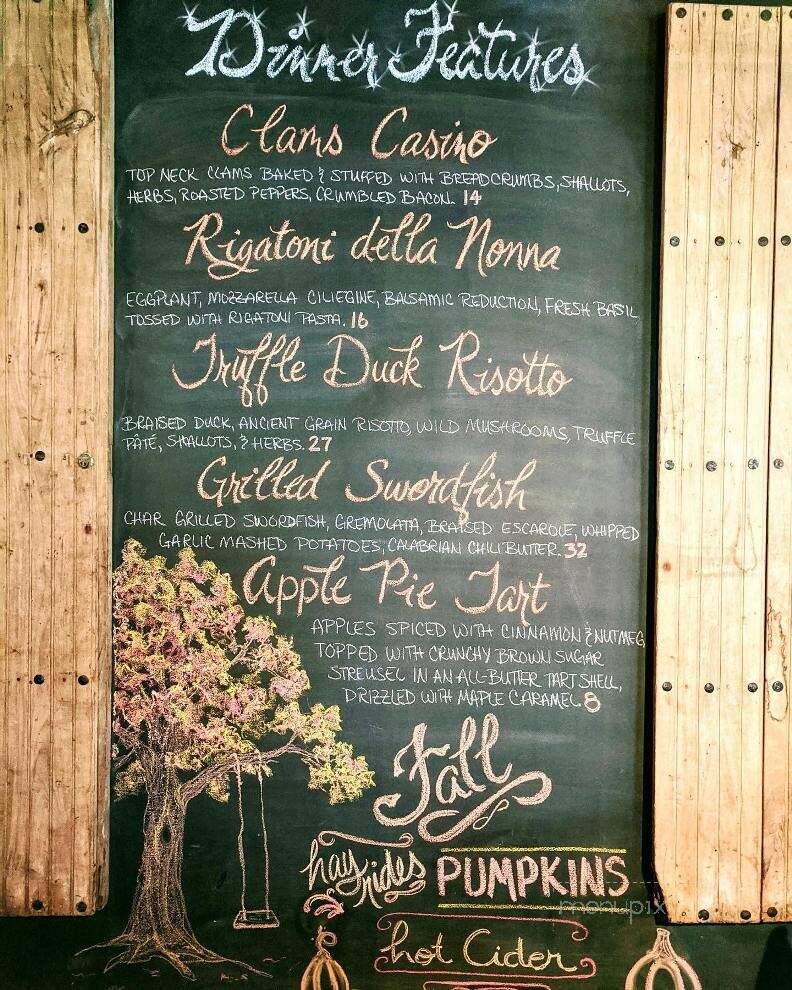 Dinner Features
Clams Casino
TOP NECK CLAMS BAKED & STUFFED WITH BREADCRUMBS, SHALLOTS,
HERBS, ROASTED PEPPERS, CRUMBLED BACON. 14
Rigatoni della Nonna
EGGPLANT, MOZZARELLA CILIEGINE, BALSAMIC REDUCTION, FRESH BASIL
TOSSED WITH RIGATONI PASTA. 16
Truffle Duck Risotto
BRAISED DUCK, ANCIENT GRAIN RISOTTO, WILD MUSHROOMS, TRUFFLE
PÂTÉ, SHALLOTS, & HERBS. 27
Grilled Swordfish
CHAR GRILLED SWORDFISH, GREMOLATA, BRAISED ESCAROLE, WHIPPED
GARLIC MASHED POTATOES, CALABRIAN CHILI BUTTER. 32
Apple Pie Tart
APPLES SPICED WITH CINNAMON & NUTMEG
TOPPED WITH CRUNCHY BROWN SUGAR
STREUSEL IN AN ALL-BUTTER TART SHELL,
DRIZZLED WITH MAPLE CARAMEL. 8
Fall
hay rides PUMPKINS
menupix
hot Cider